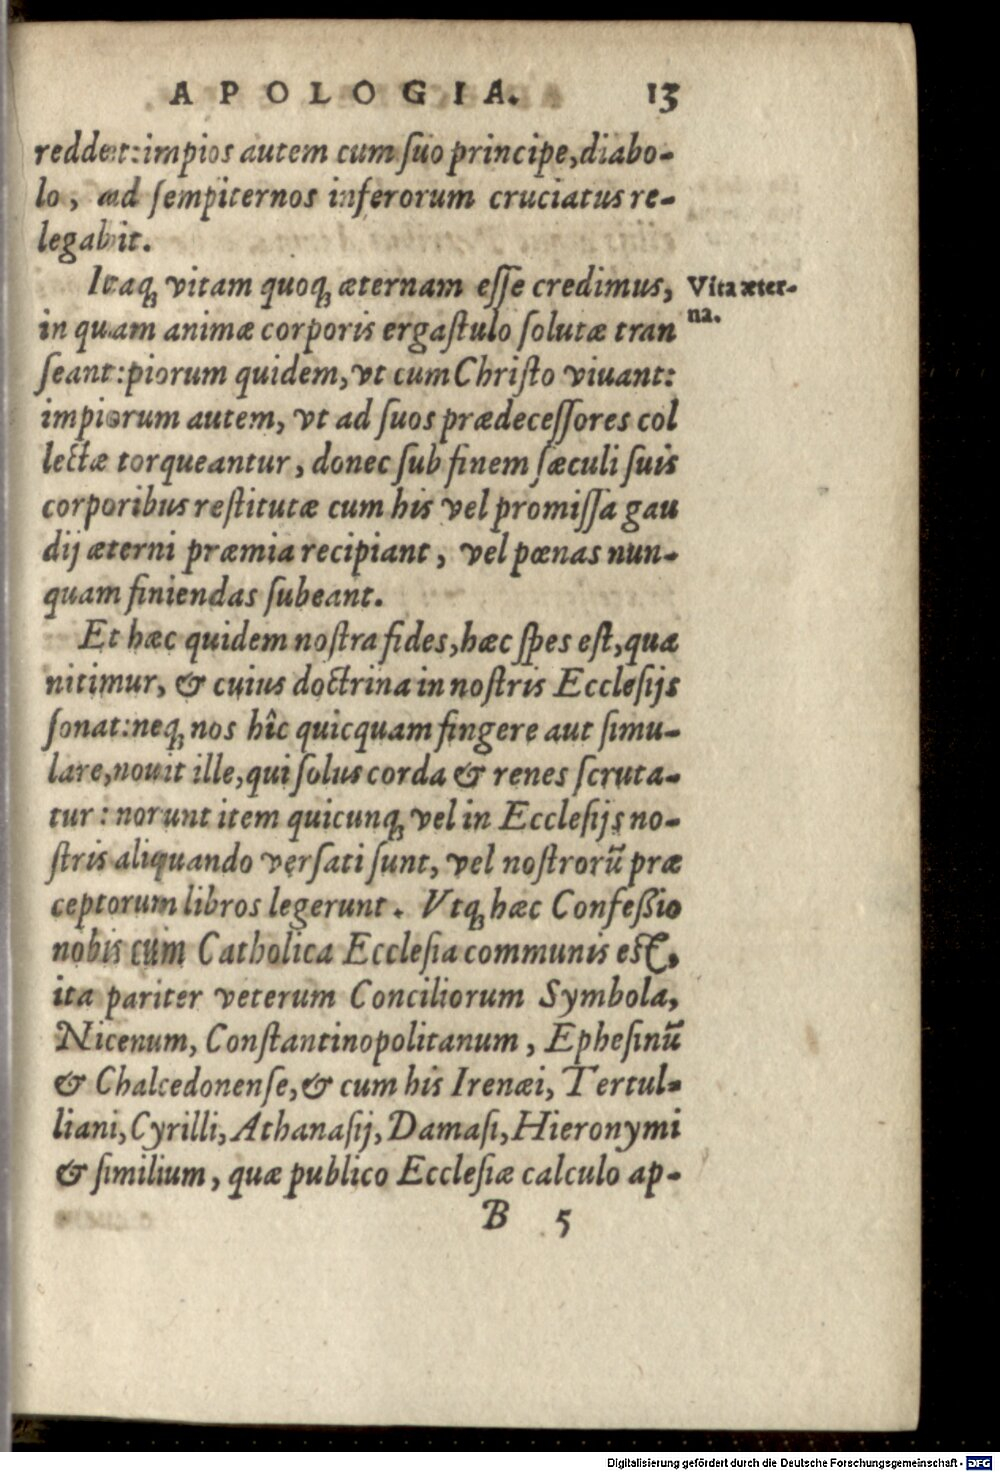 APOLOGIA. 13
reddet: impios autem cum ſuo principe, diabo-
lo, ad ſempiternos inferorum cruciatus re-
legabit.
Itaq́; vitam quoq́; æternam eſſe credimus,
Vita æter-
na.
in quam animæ corporis ergaſtulo ſolutæ tran
ſeant: piorum quidem, vt cum Chriſto viuant:
impiorum autem, vt ad ſuos prædeceſſores col
lectæ torqueantur, donec ſub finem ſæculi ſuis
corporibus reſtitutæ cum his vel promiſſa gau
dij æterni præmia recipiant, vel pœnas nun-
quam finiendas ſubeant.
Et hæc quidem noſtra fides, hæc ſpes eſt, qua
nitimur, & cuius doctrina in noſtris Eccleſijs
ſonat: neq́; nos hîc quicquam fingere aut ſimu-
lare, nouit ille, qui ſolus corda & renes ſcruta-
tur: norunt item quicunq́; vel in Eccleſijs no-
ſtris aliquando verſati ſunt, vel noſtrorũ præ
ceptorum libros legerunt. Vtq́; hæc Confeßio
nobis cum Catholica Eccleſia communis est,
ita pariter veterum Conciliorum Symbola,
Nicenum, Conſtantinopolitanum, Epheſinũ
& Chalcedonenſe, & cum his Irenæi, Tertul-
liani, Cyrilli, Athanaſij, Damaſi, Hieronymi
& ſimilium, quæ publico Eccleſiæ calculo ap-
B 5
Digitalisierung gefördert durch die Deutsche Forschungsgemeinschaft - DFG